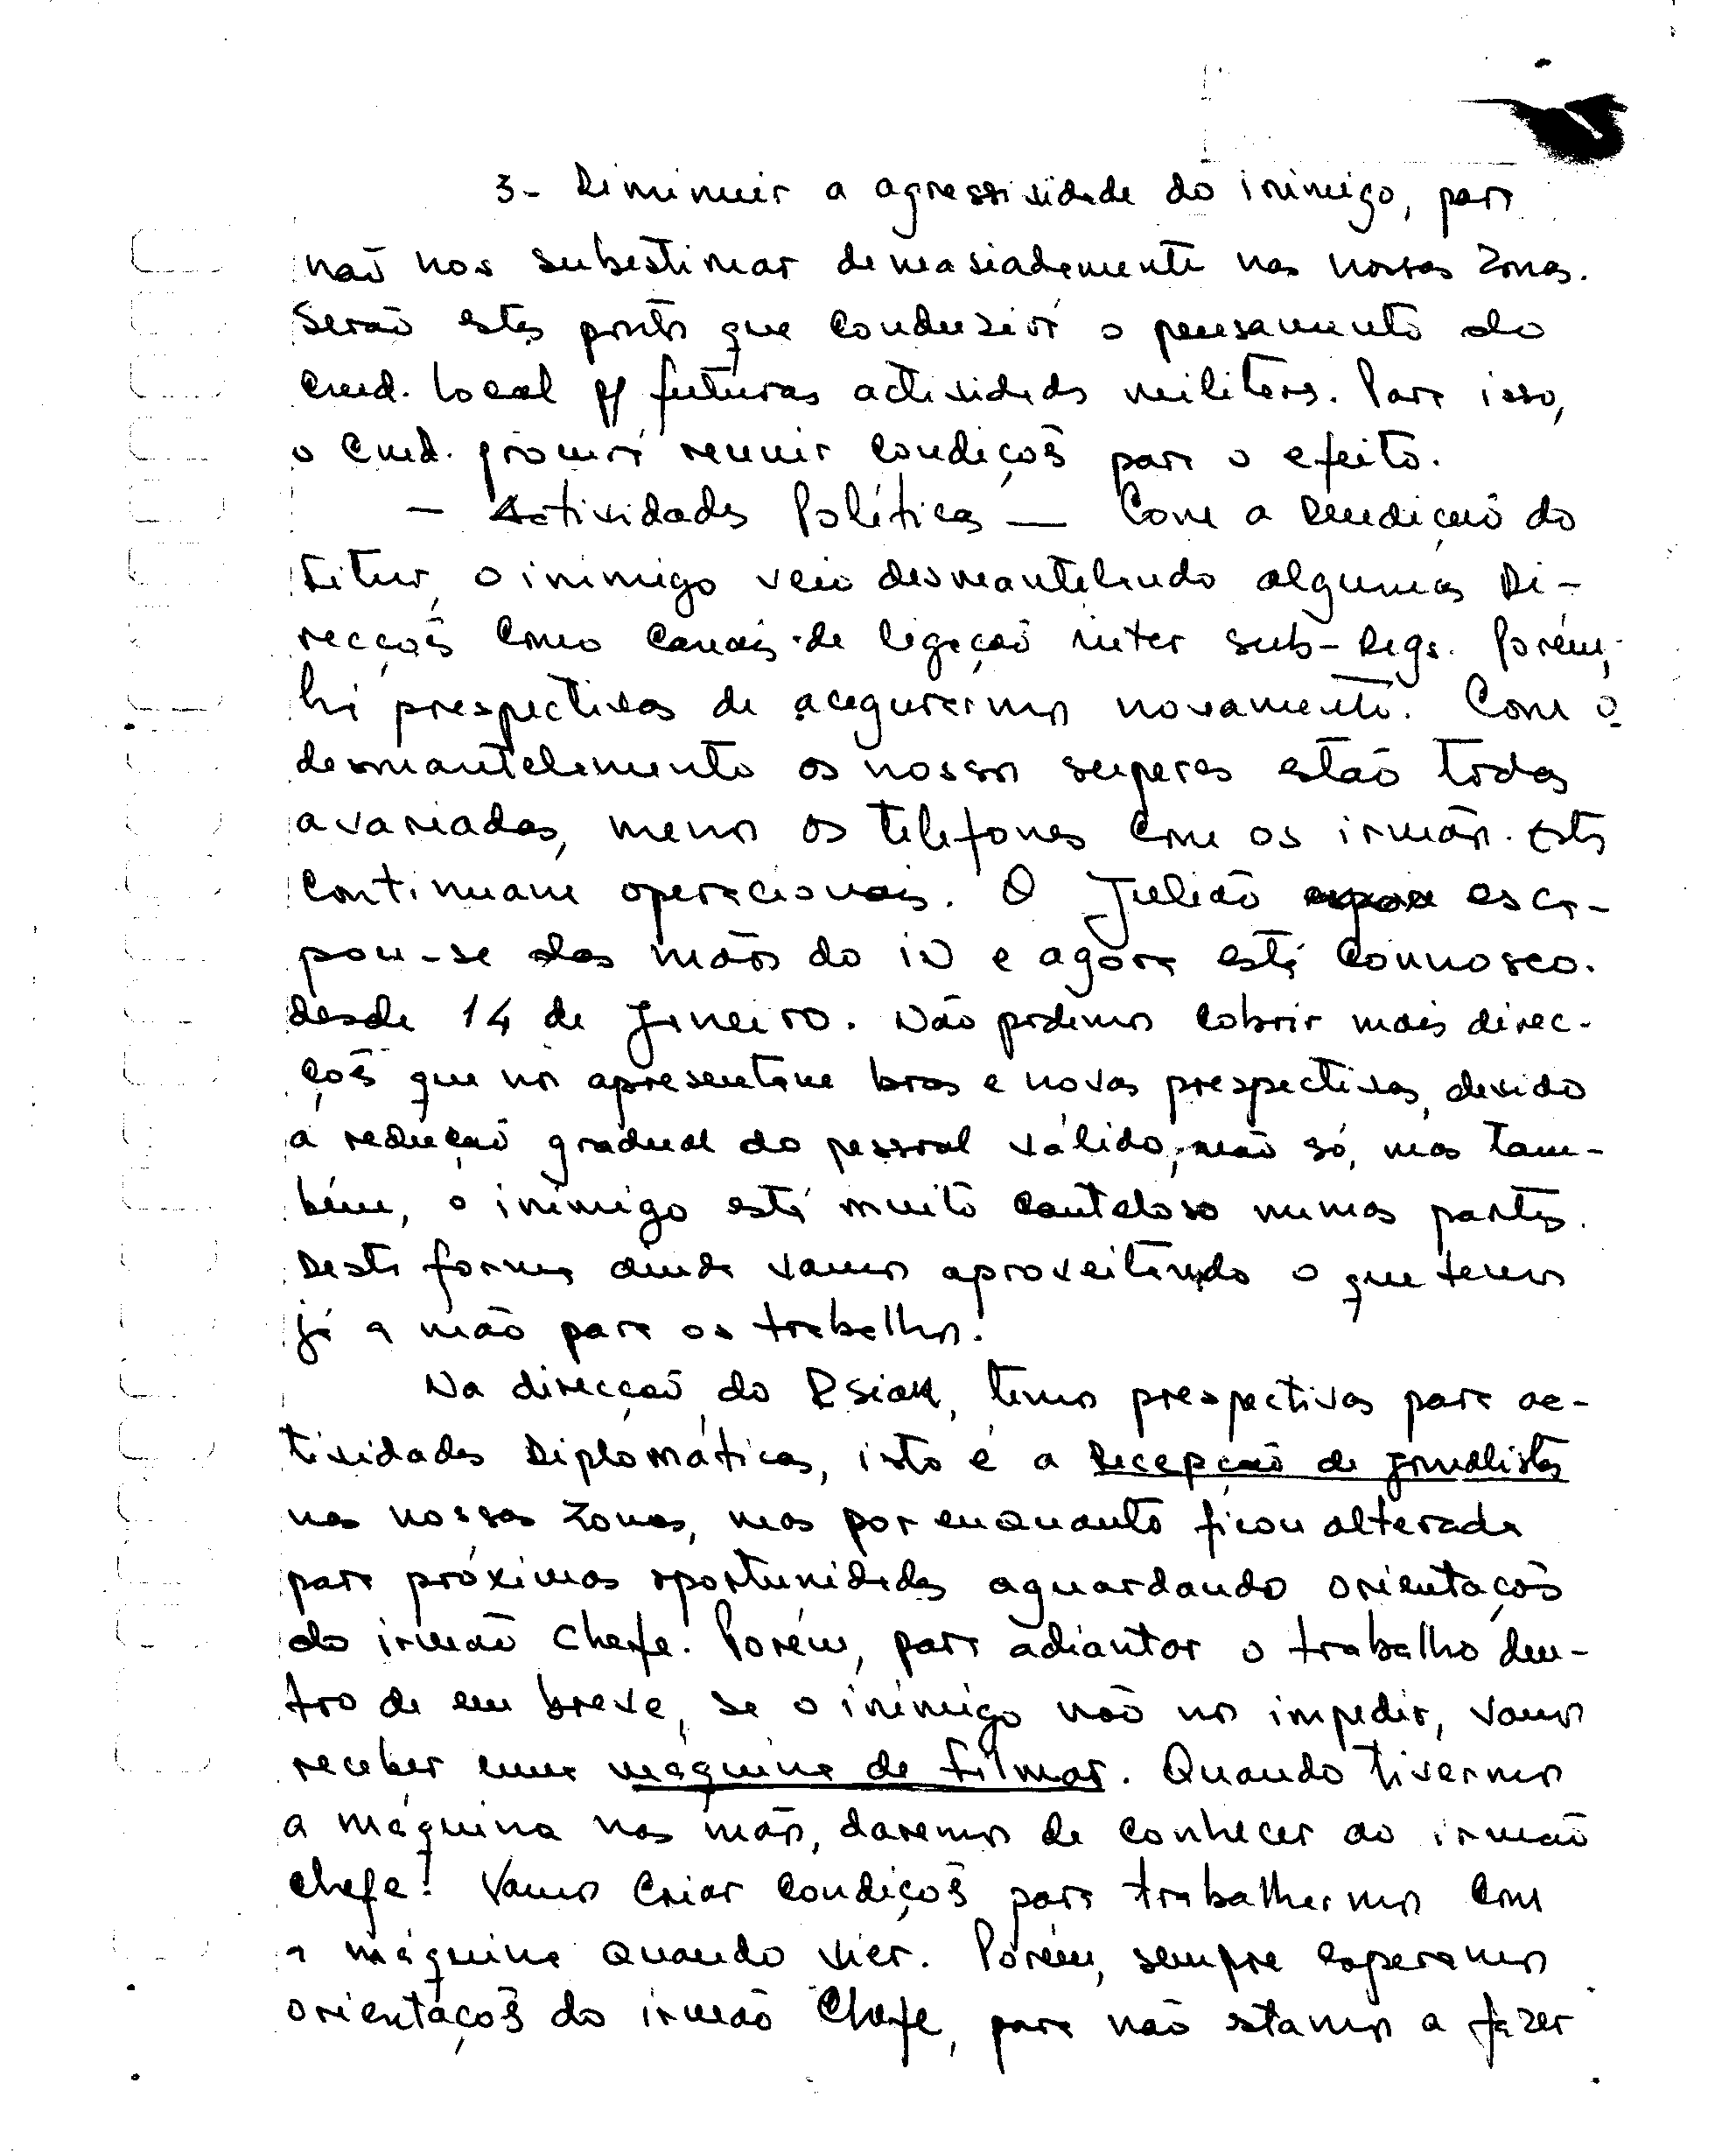 3- Diminuir a agressividade do inimigo, para
não nos subestimar demasiadamente nas nossas zonas.
Serão estes pontos que conduzirá o pensamento do
Cmd. local p/ futuras actividades militares. Para isso,
o Cmd. procura reunir condições para o efeito.
- Actividades Políticas — Com a Rendição do
, o inimigo veio desmantelando algumas Di-
recções como canais de ligação inter sub-Regs. Porém,
há prespectivas de acegurarmos novamente. Com o
desmantelamento os nossos estão todas
avariadas, menos os telefones com os irmãos. Estes
continuam operacionais. O Julião esca-
pou-se das mãos do iN e agora está connosco.
desde 14 de Janeiro. Não podemos cobrir mais direc-
ções que nos apresentam boas e novas prespectivas, devido
a redução gradual do pessoal válido, não só, mas tam-
bém, o inimigo está muito cauteloso numas partes.
Desta forma ainda vamos aproveitando o que temos
já a mão para os trabalhos.
Na direcção do , temos prespectivas para ac-
tividades Diplomáticas, isto é a Recepção de jornalistas
nas nossas zonas, mas por enquanto ficou alterada
para próximas oportunidades aguardando orientações
do irmão Chefe. Porém, para adiantar o trabalho den-
tro de em breve, se o inimigo não nos impedir, vamos
receber uma máquina de filmar. Quando tivermos
a máquina nas mãos, daremos de conhecer ao irmão
chefe! Vamos criar condições para trabalharmos com
a máquina quando vier. Porém, sempre esperamos
orientações do irmão Chefe, para não estamos a fazer